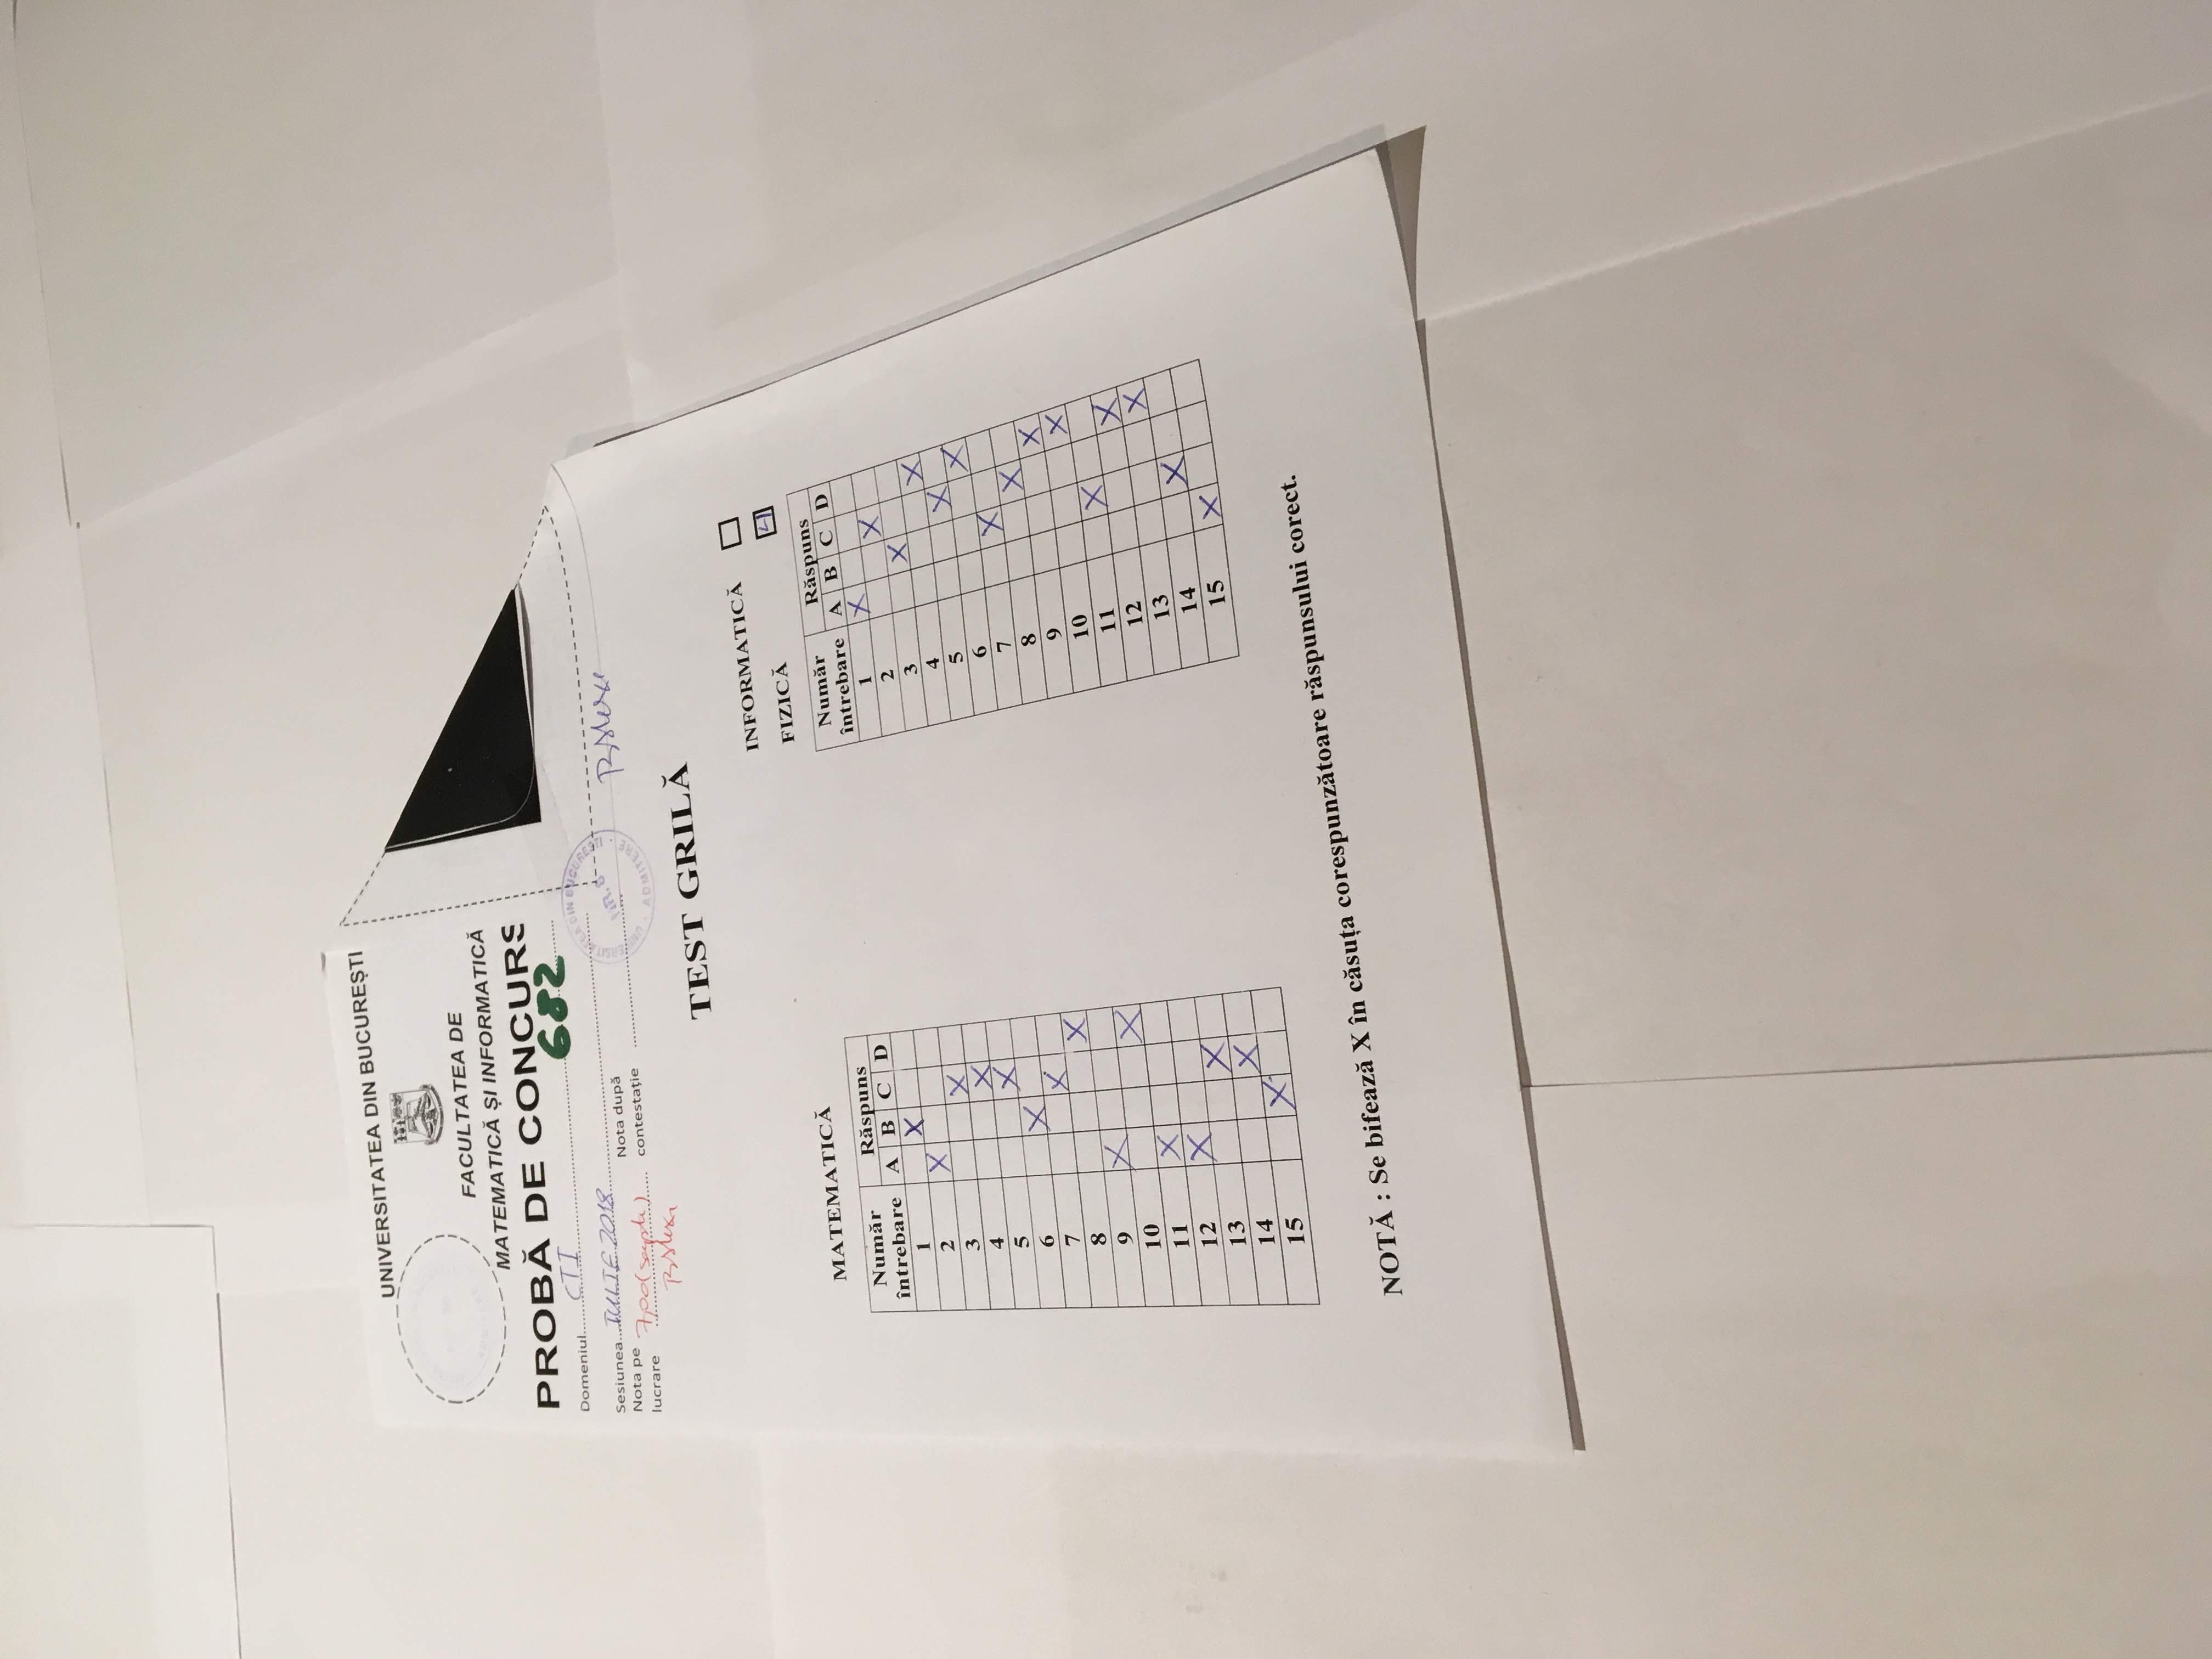 UNIVERSITATEA DIN BUCUREȘTI
FACULTATEA DE
MATEMATICĂ ȘI INFORMATICĂ
PROBĂ DE CONCURS
682
Domeniul CTI
Sesiunea IULIE 2018
Nota pe lucrare 7,00 (șapte)
Nota după contestație
UNIVERSITATEA DIN BUCUREȘTI
NR. 6
ADMITERE
TEST GRILĂ
INFORMATICĂ
FIZICĂ 4
MATEMATICĂ
Număr întrebare Răspuns
A B C D
1 X
2 X
3 X
4 X
5 X
6 X
7 X
8 X
9 X
10 X
11 X
12 X
13 X
14 X
15 X
Număr întrebare Răspuns
A B C D
1 X
2 X
3 X
4 X
5 X
6 X
7 X
8 X
9 X
10 X
11 X
12 X
13 X
14 X
15 X
NOTĂ : Se bifează X în căsuța corespunzătoare răspunsului corect.